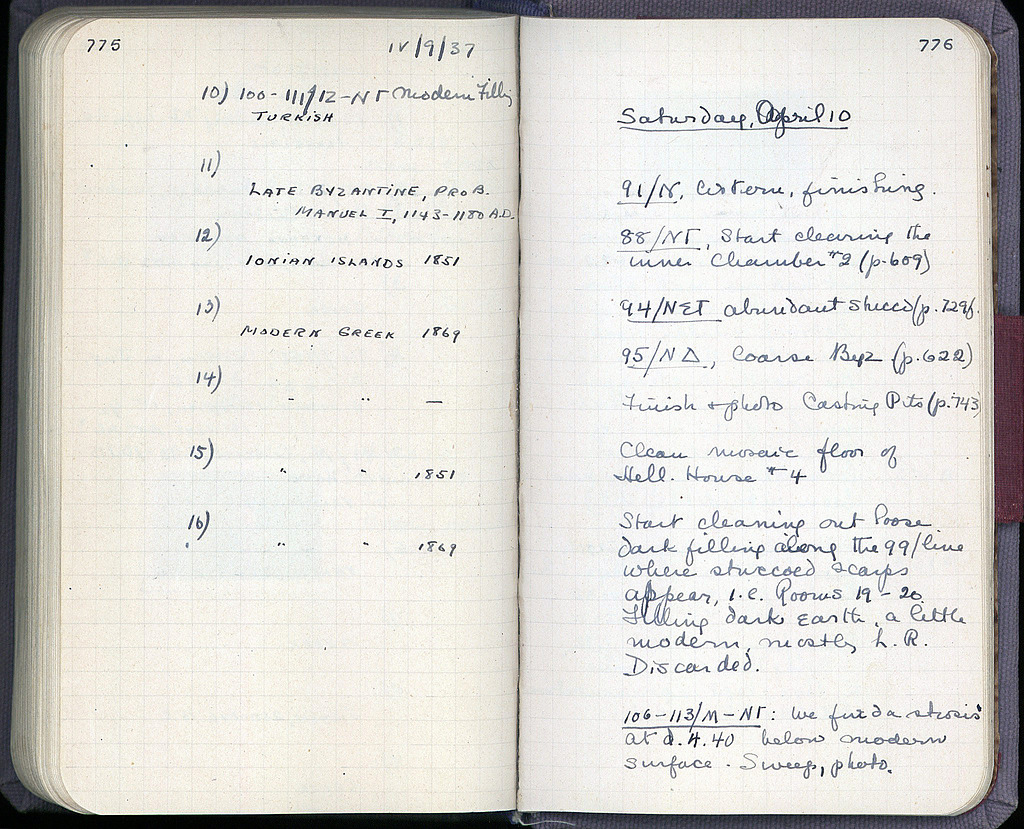 775
IV/9/37
10) 100-111/12-NΓ Modern Filling
TURKISH
11)
LATE BYZANTINE, PROB.
MANUEL I, 1143-1180 A.D.
12)
IONIAN ISLANDS 1851
13)
MODERN GREEK 1869
14)
" " —
15)
" " 1851
16)
" " 1869
776
Saturday, April 10
91/N, Cistern, finishing.
88/NΓ, Start clearing the
inner Chamber #2 (p.609)
94/NΣΤ abundant stucco (p.729f.
95/NΔ, Coarse Byz (p.622)
Finish + photo Casting Pits (p.743)
Clean mosaic floor of
Hell. House #4
Start cleaning out loose
dark filling along the 99/line
where stuccoed scarps
appear, i.e. Rooms 19-20.
Filling dark earth, a little
modern, mostly L.R.
Discarded.
106-113/M-NΓ: We find a strosis
at d. 4.40 below modern
surface. Sweep, photo.